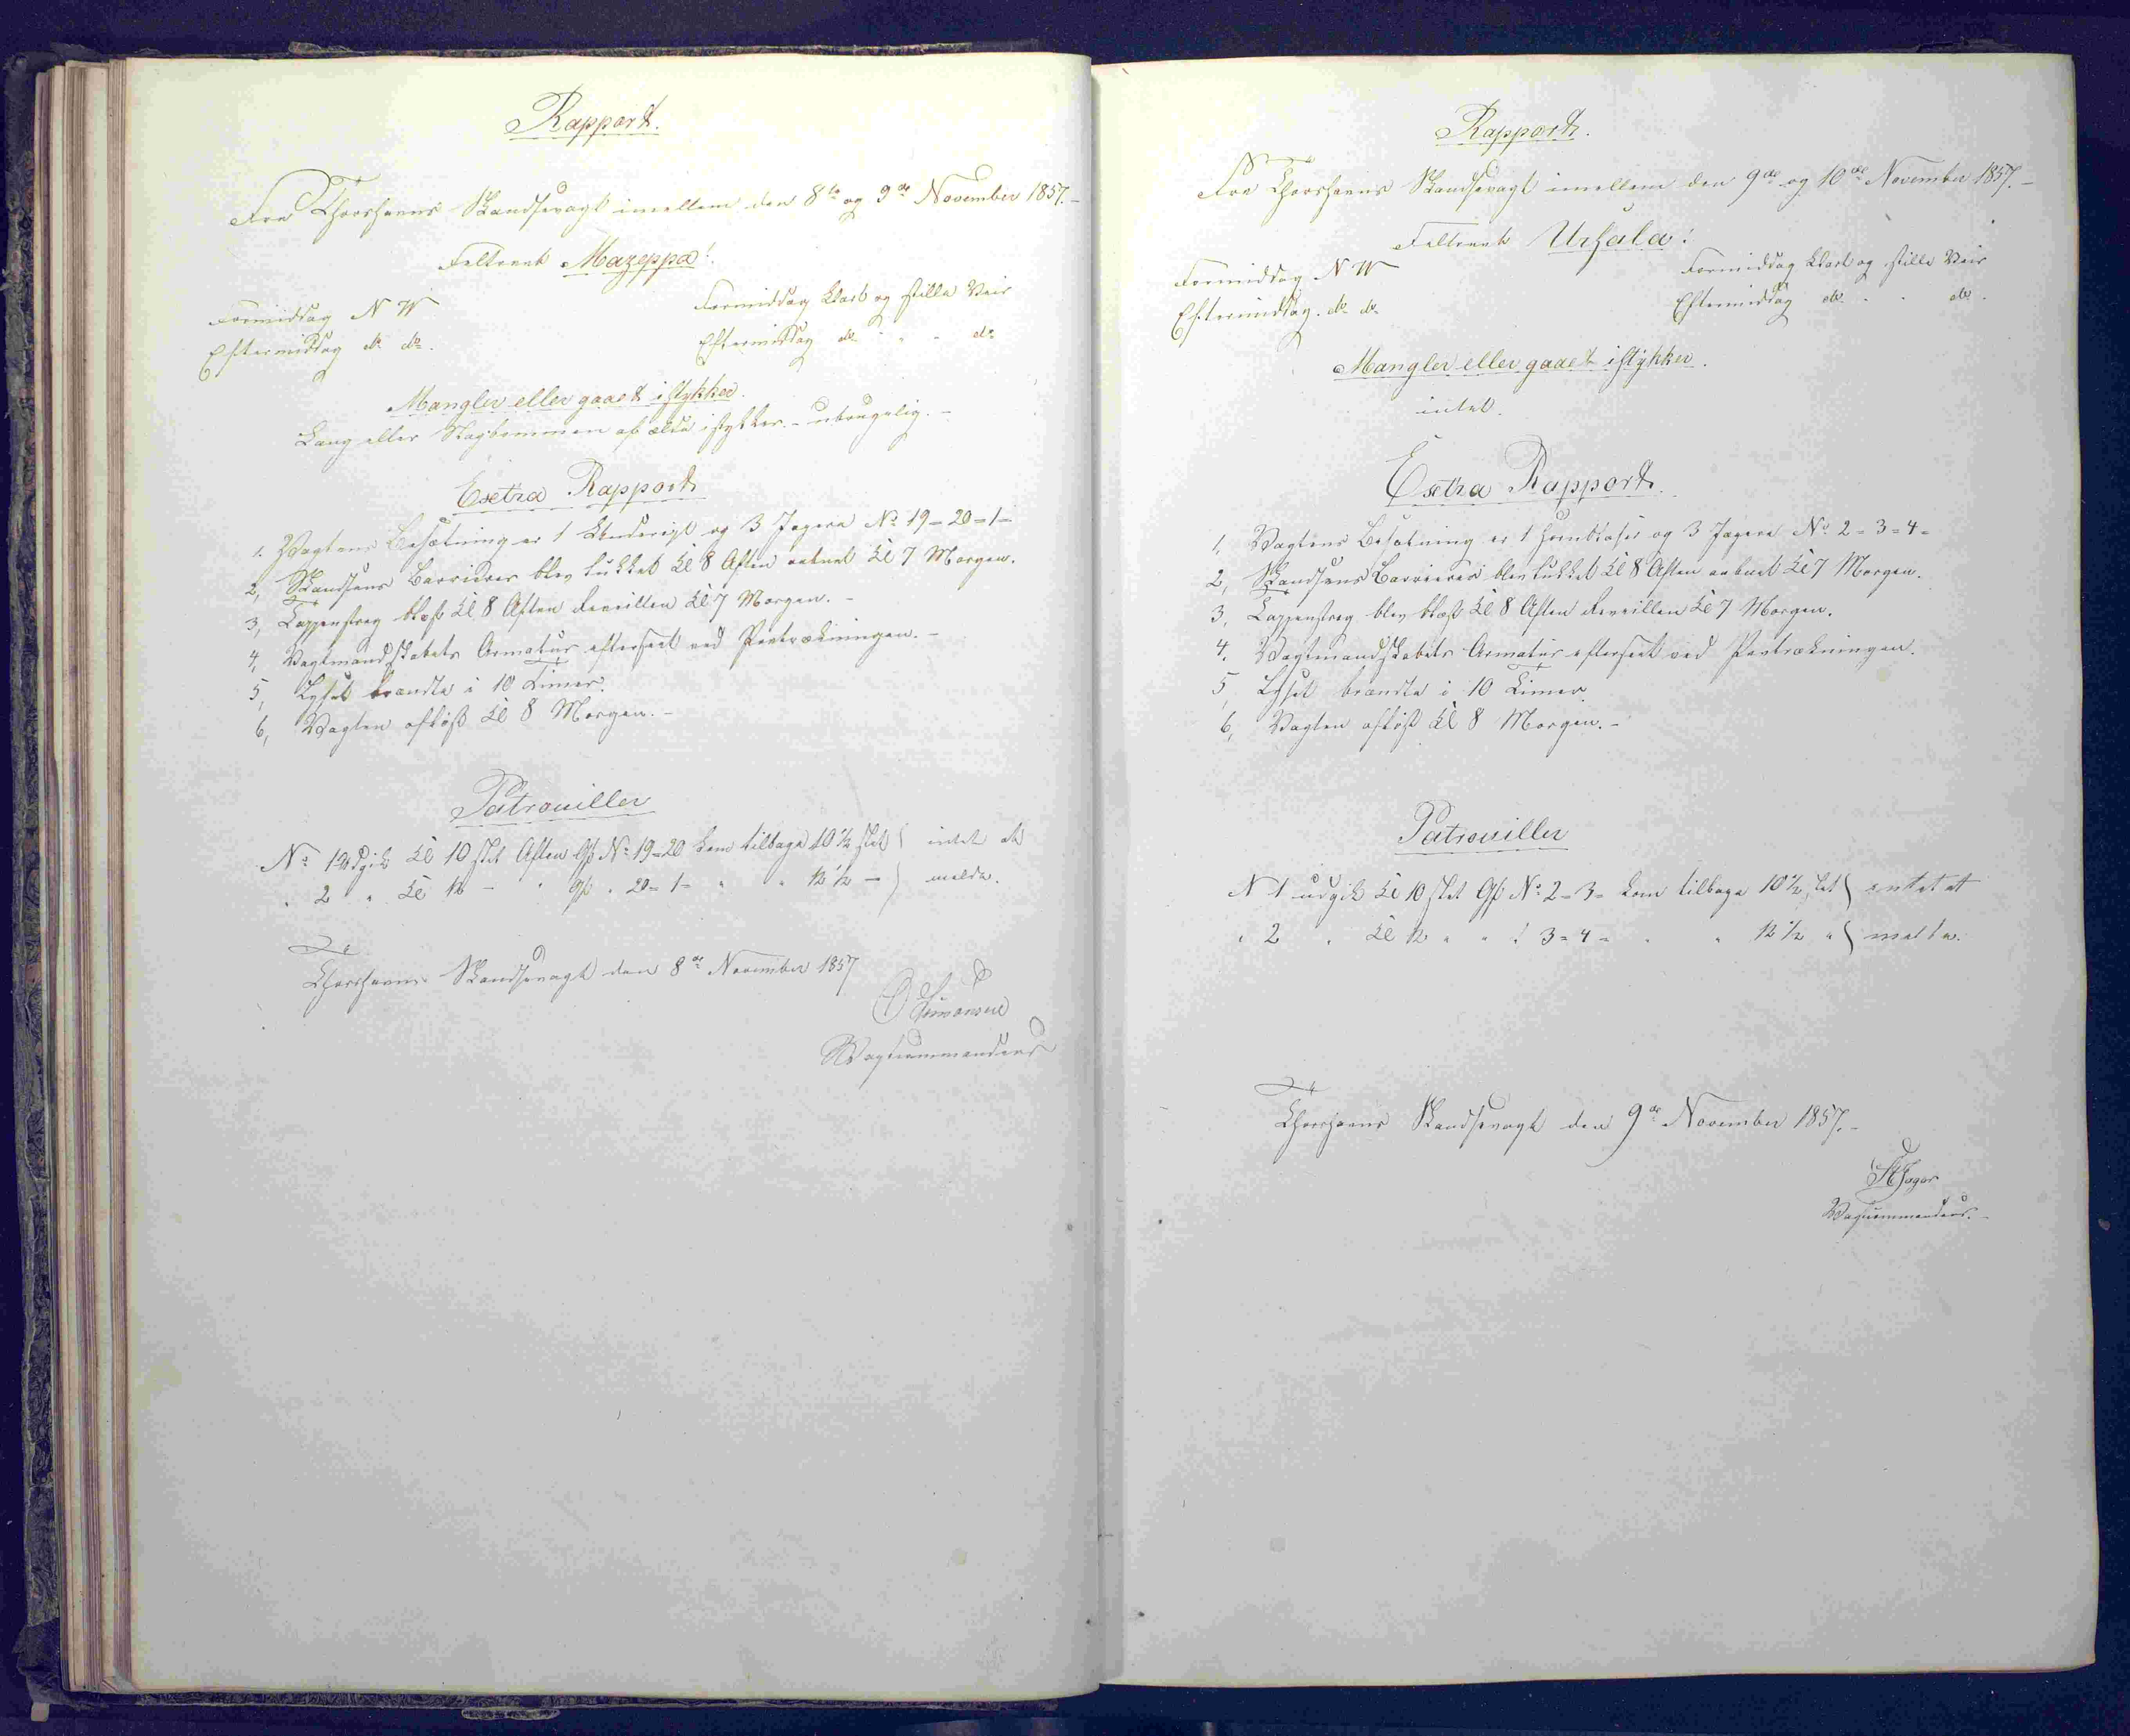 Rapport.
Fra Thorshavns Skandsevagt imellem den 8de og 9de November 1857.-
Feltraab Mazeppa!
Formiddag N W
Formiddag klart og stille Veir
Eftermiddag do do.
Eftermiddag do " " - do
Mangler eller gaaet istykker.
eller af ælde istykker. - ubrugelig. -
Exstra Rapport
1. Vagtens Besætning er 1 Underojt og 3 Jægere No 19=20=1=
2, Skandsens Barrierer blev lukket Kl 8 Aften aabnet Kl 7 Morgen.
3, Tappenstreg blæst Kl 8 Aften Reveillen Kl 7 Morgen. -
4, Vagtmandskabets Armatur efterseet ved Paatrækningen. -
5, Lyset brændte i 10 Timer.
6, Vagten afløst Kl 8 Morgen. -
Patrouiller
No 1 Udgik Kl 10 slet Aften Gf No 19=20 kom tilbage 10 1/2 slet } intet at
" 2 " Kl 12 - " Gf " 20=1= " " 12 1/2 - } melde.
Thorshavns Skandsevagt den 8de November 1857
Simonsen
Vagtcommandeur
Rapport.
Fra Thorshavns Skandsevagt imellem den 9de og 10de November 1857.-
Feltraab Ursula!
Formiddag N W
Formiddag klart og stille Veir
Eftermiddag. do do
Eftermiddag do " " do.
Mangler eller gaaet istykker.
intet.
Exstra Rapport.
1, Vagtens Besætning er 1 Hornblæser og 3 Jægere No 2=3=4=
2, Skandsens Barrierer blev lukket Kl 8 Aften aabnet Kl 7 Morgen.
3, Tappenstreg blev blæst Kl 8 Aften Reveillen Kl 7 Morgen.
4. Vagtmandskabets Armatur efterseet ved Paatrækningen.
5, Lyset brændte i 10 Timer
6, Vagten afløst Kl 8 Morgen. -
Patrouiller
N 1 udgik Kl 10 slet Gf No 2=3= kom tilbage 10 1/2 slet } intet at
" 2 " Kl 12 " " " 3=4= " " 12 1/2 " } melde.
Thorshavns Skandsevagt den 9de November 1857.-
Vagtcommandeur. -